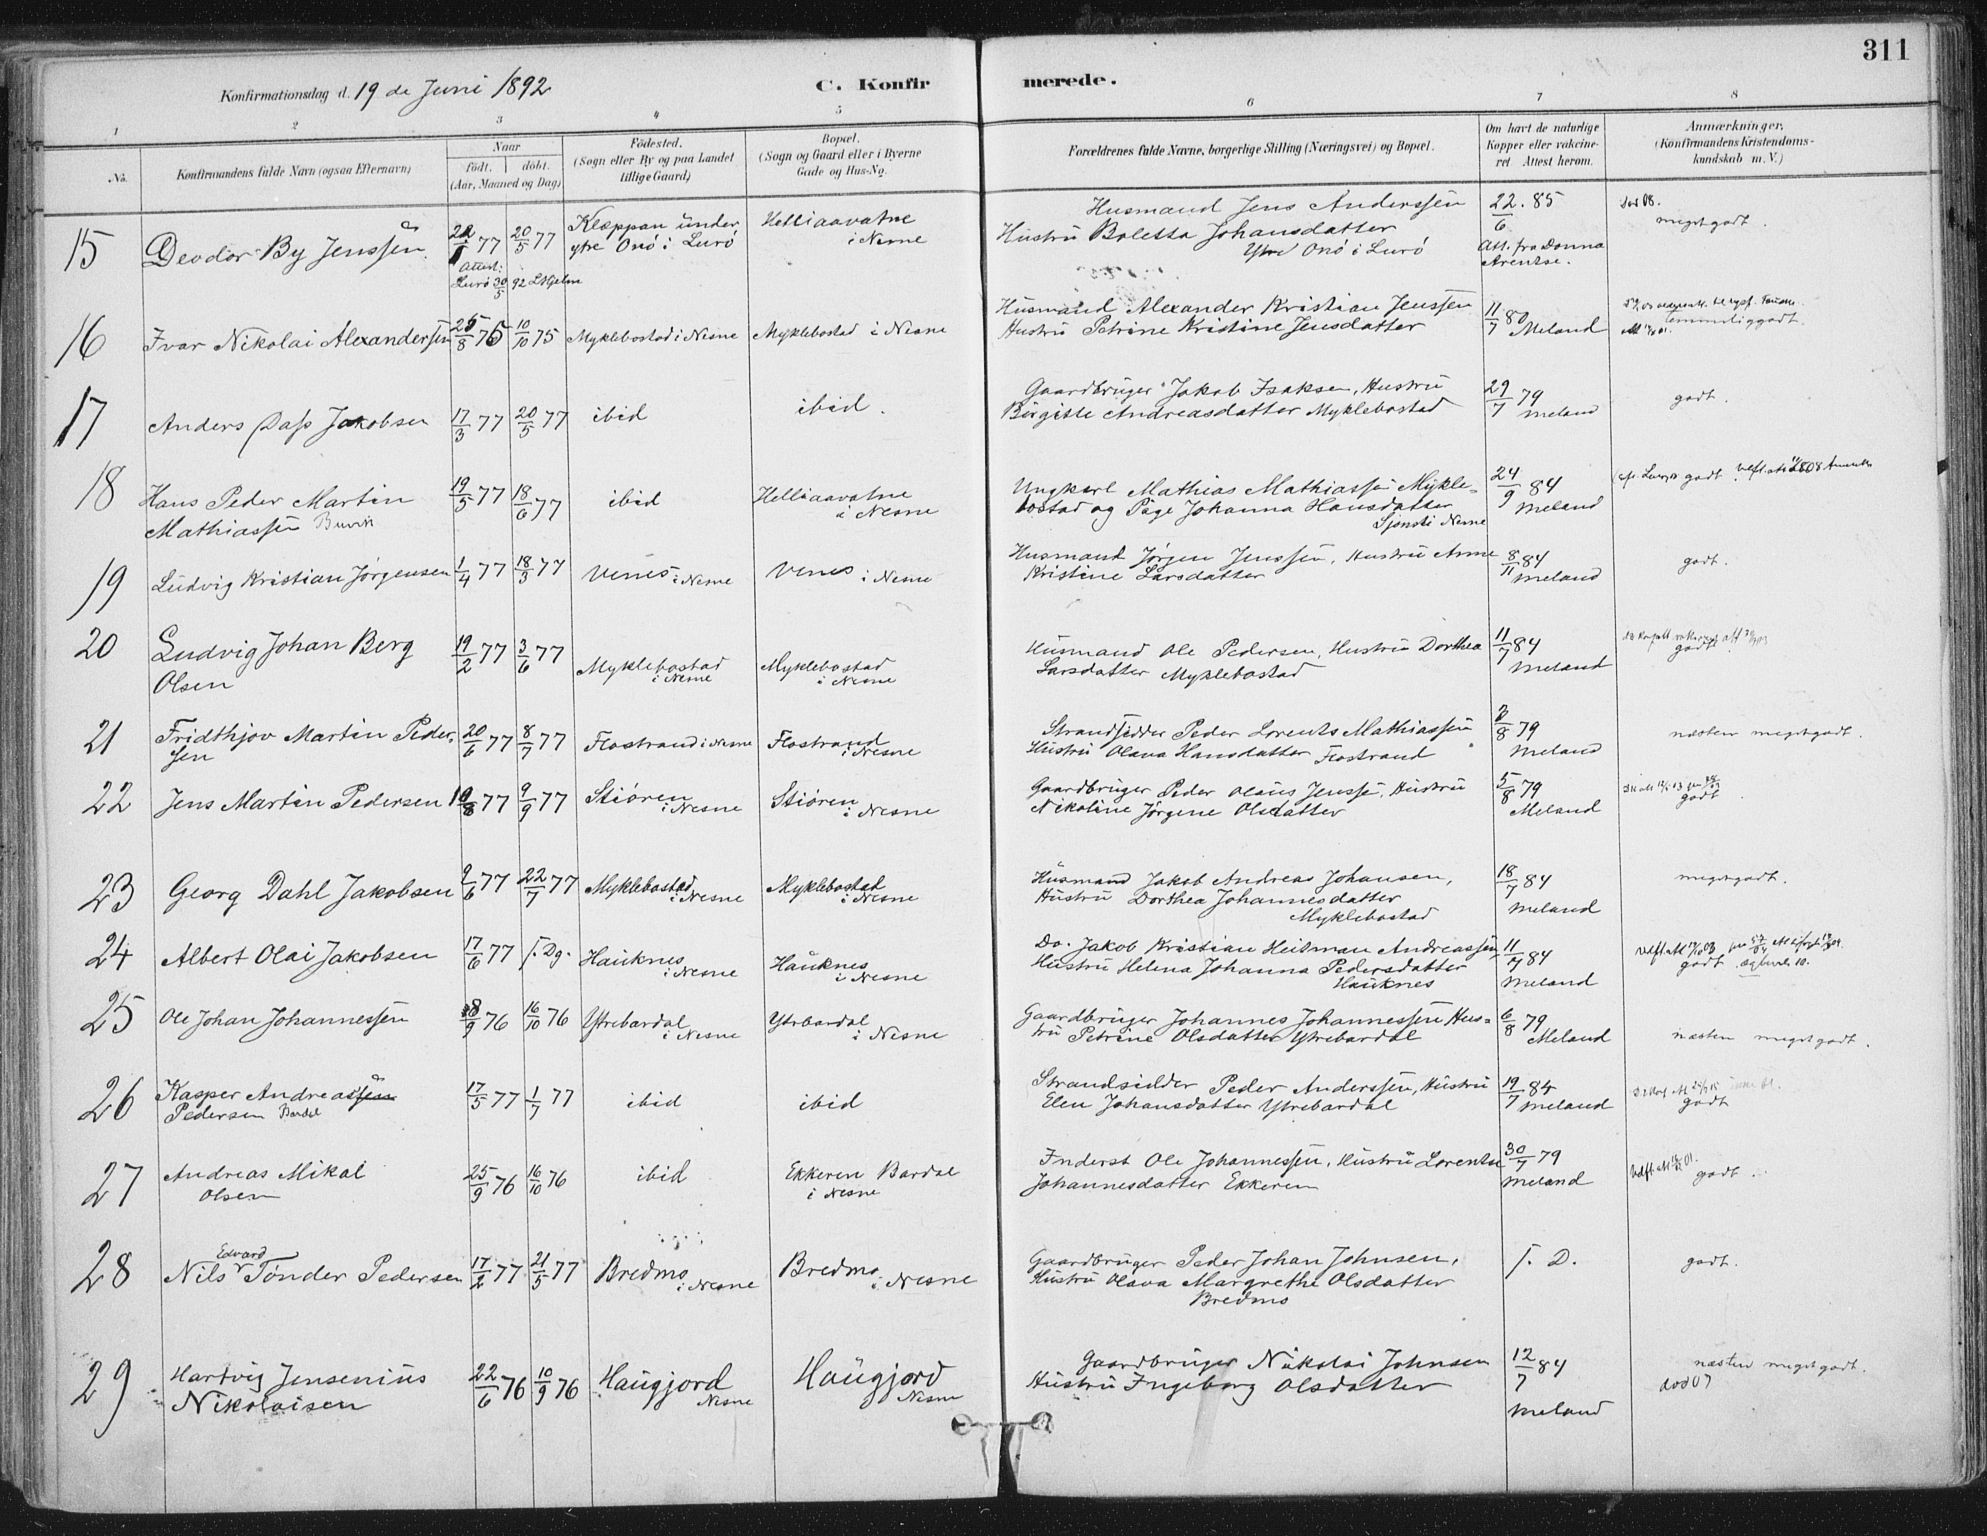 311
Konfirmationsdag d. 19 de Juni 1892
C. Konfir merede.
1 2 3 4 5 6 7 8
No.
Konfirmandens fulde Navn (ogsaa Efternavn)
Naar
födt. döbt.
(Aar, Maaned og Dag)
Födested.
(Sogn eller By og paa Landet
tillige Gaard)
Bopæl.
(Sogn og Gaard eller i Byerne
Gade og Hus-No.
Forældrenes fulde Navne, borgerlige Stilling (Næringsvei) og Bopæl.
Om havt de naturlige
Kopper eller vakcine-
ret Attest herom.
Anmærkninger.
(Konfirmandens Kristendoms-
kundskab m. V.)
15 Deodor By Jenssen 77 20/5 77 Klæppan under
ytre Onö i Lurö
Helliaavatne
i Nesne
Husmand Jens Anderssen
Hustru Boletta Johansdatter
Ytre Onö i Lurö
22/6 85
Att. fra Donna
Arentse.
död 08.
megetgodt.
Attest:
Lurö 30/5 92
16 Ivar Nikolai Alexandersen 25/8 75 10/10 75 Myklebostad i Nesne Myklebostad i Nesne
Husmand Alexander Kristian Jenssen
Hustru Petrine Kristine Jensdatter
11/7 80
Meland
temmeliggodt.
17 Anders Dass Jakobsen 17/3 77 20/5 77 ibid ibid.
Gaardbruger Jakob Isaksen, Hustru
Birgitte Andreasdatter Myklebostad
29/7 79
Meland
godt.
18 Hans Peder Martin
Mathiassen
19/5 77 18/6 77 ibid Helliaavatne
i Nesne
Ungkarl Mathias Mathiassen Mykle-
bostad og Pige Johanna Hansdatter
Sjonsti Nesne
24/9 84
Meland
godt.
19 Ludvig Kristian Jørgensen 1/4 77 18/3 77 Venes i Nesne Venes i Nesne
Husmand Jørgen Jenssen, Hustru Anne
Kristine Larsdatter
8/11 84
Meland
godt.
20 Ludvig Johan Berg
Olsen
19/2 77 3/6 77 Myklebostad
i Nesne
Myklebostad
i Nesne
Husmand Ole Pedersen, Hustru Dorthea
Larsdatter Myklebostad
11/7 84
Meland
godt
21 Fridthjov Martin Peder-
sen
20/6 77 8/7 77 Flostrand i Nesne Flostrand
i Nesne
Strandsidder Peder Lorents Mathiassen
Hustru Olava Hansdatter Flostrand
3/8 79
Meland
næsten megetgodt.
22 Jens Martin Pedersen 10/8 77 9/9 77 Stiören
i Nesne
Stiören
i Nesne
Gaardbruger Peder Olaus Jenssen, Hustru
Nikoline Jørgine Olsdatter
5/8 79
Meland
godt
23 Georg Dahl Jakobsen 9/6 77 22/7 77 Myklebostad
i Nesne
Myklebostad
i Nesne
Husmand Jakob Andreas Johansen,
Hustru Dorthea Johannesdatter
Myklebostad
18/7 84
Meland
megetgodt.
24 Albert Olai Jakobsen 17/6 77 s. Dg. Hauknes
i Nesne
Hauknes
i Nesne
Do. Jakob Kristian Heitman Andreassen,
Hustru Helena Johanna Pedersdatter
Hauknes
11/7 84
Meland
godt
25 Ole Johan Johannessen 8/9 76 16/10 76 Ytrebardal
i Nesne
Ytrbardal
i Nesne
Gaardbruger Johannes Johannessen Hus-
tru Petrine Olsdatter Ytrebardal
6/8 79
Meland
næsten megetgodt.
26 Kasper Andreas
Pedersen Bardal
17/5 77 1/7 77 ibid ibid
Strandsidder Peder Anderssen, Hustru
Elen Johansdatter Ytrebardal
19/7 84
Meland
godt
27 Andreas Mikal
Olsen
25/9 76 16/10 76 ibid Ekkeren Bardal
i Nesne
Inderst Ole Johannessen, Hustru Lorentse
Johannesdatter Ekkeren
30/7 79
Meland
godt.
28 Nils Edvard Tönder Pedersen 17/2 77 21/5 77 Bredmo
i Nesne
Bredmo
i Nesne
Gaardbruger Peder Johan Johnsen,
Hustru Olava Margrethe Olsdatter
Bredmo
s. D.
godt.
29 Hartvig Jensenius
Nikolaisen
22/6 76 10/9 76 Haugjord
Nesne
Haugjord
Nesne
Gaardbruger Nikolai Johnsen
Hustru Ingeborg Olsdatter
12/7 84
Meland
næsten megetgodt.
död 07